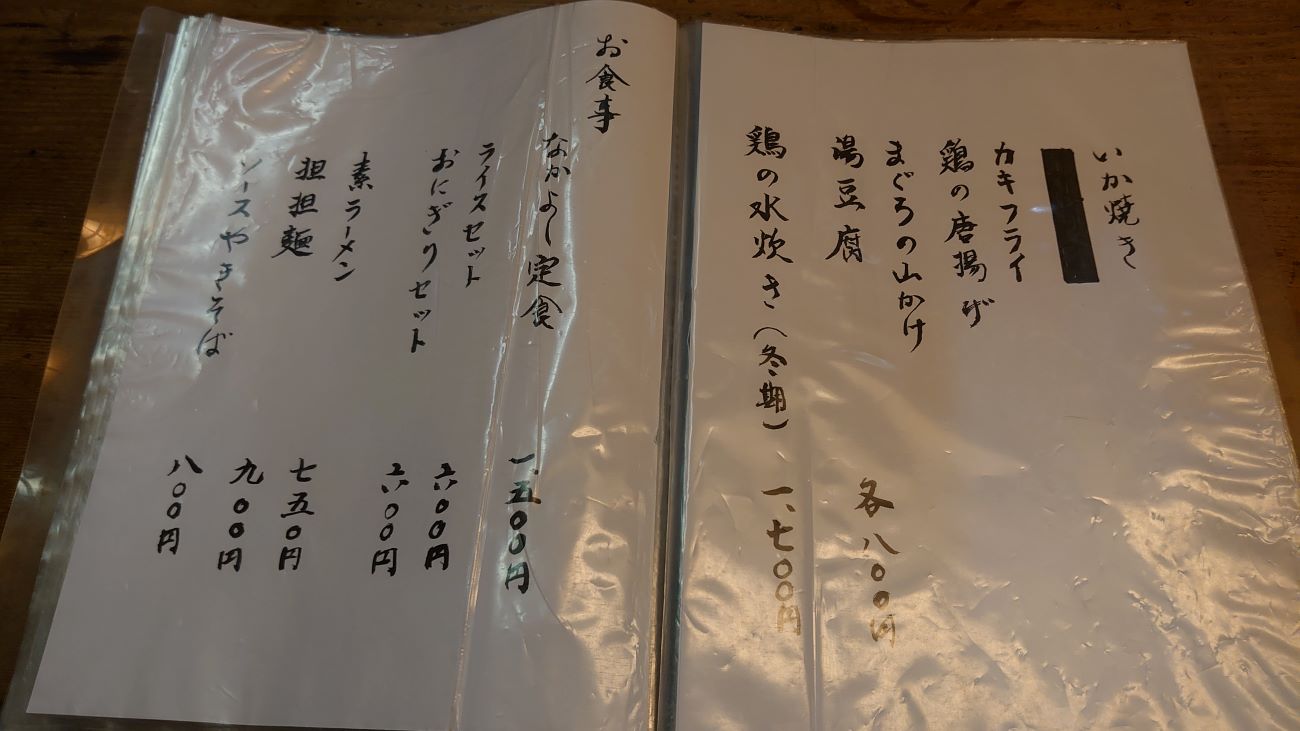 いか焼き
カキフライ
鶏の唐揚げ
まぐろの山かけ
湯豆腐
各八〇〇円
鶏の水炊き(冬期)
一、七〇〇円
お食事
なかよし定食
一、五〇〇円
ライスセット
六〇〇円
おにぎりセット
六〇〇円
素ラーメン
七五〇円
担担麺
九〇〇円
ソースやきそば
八〇〇円